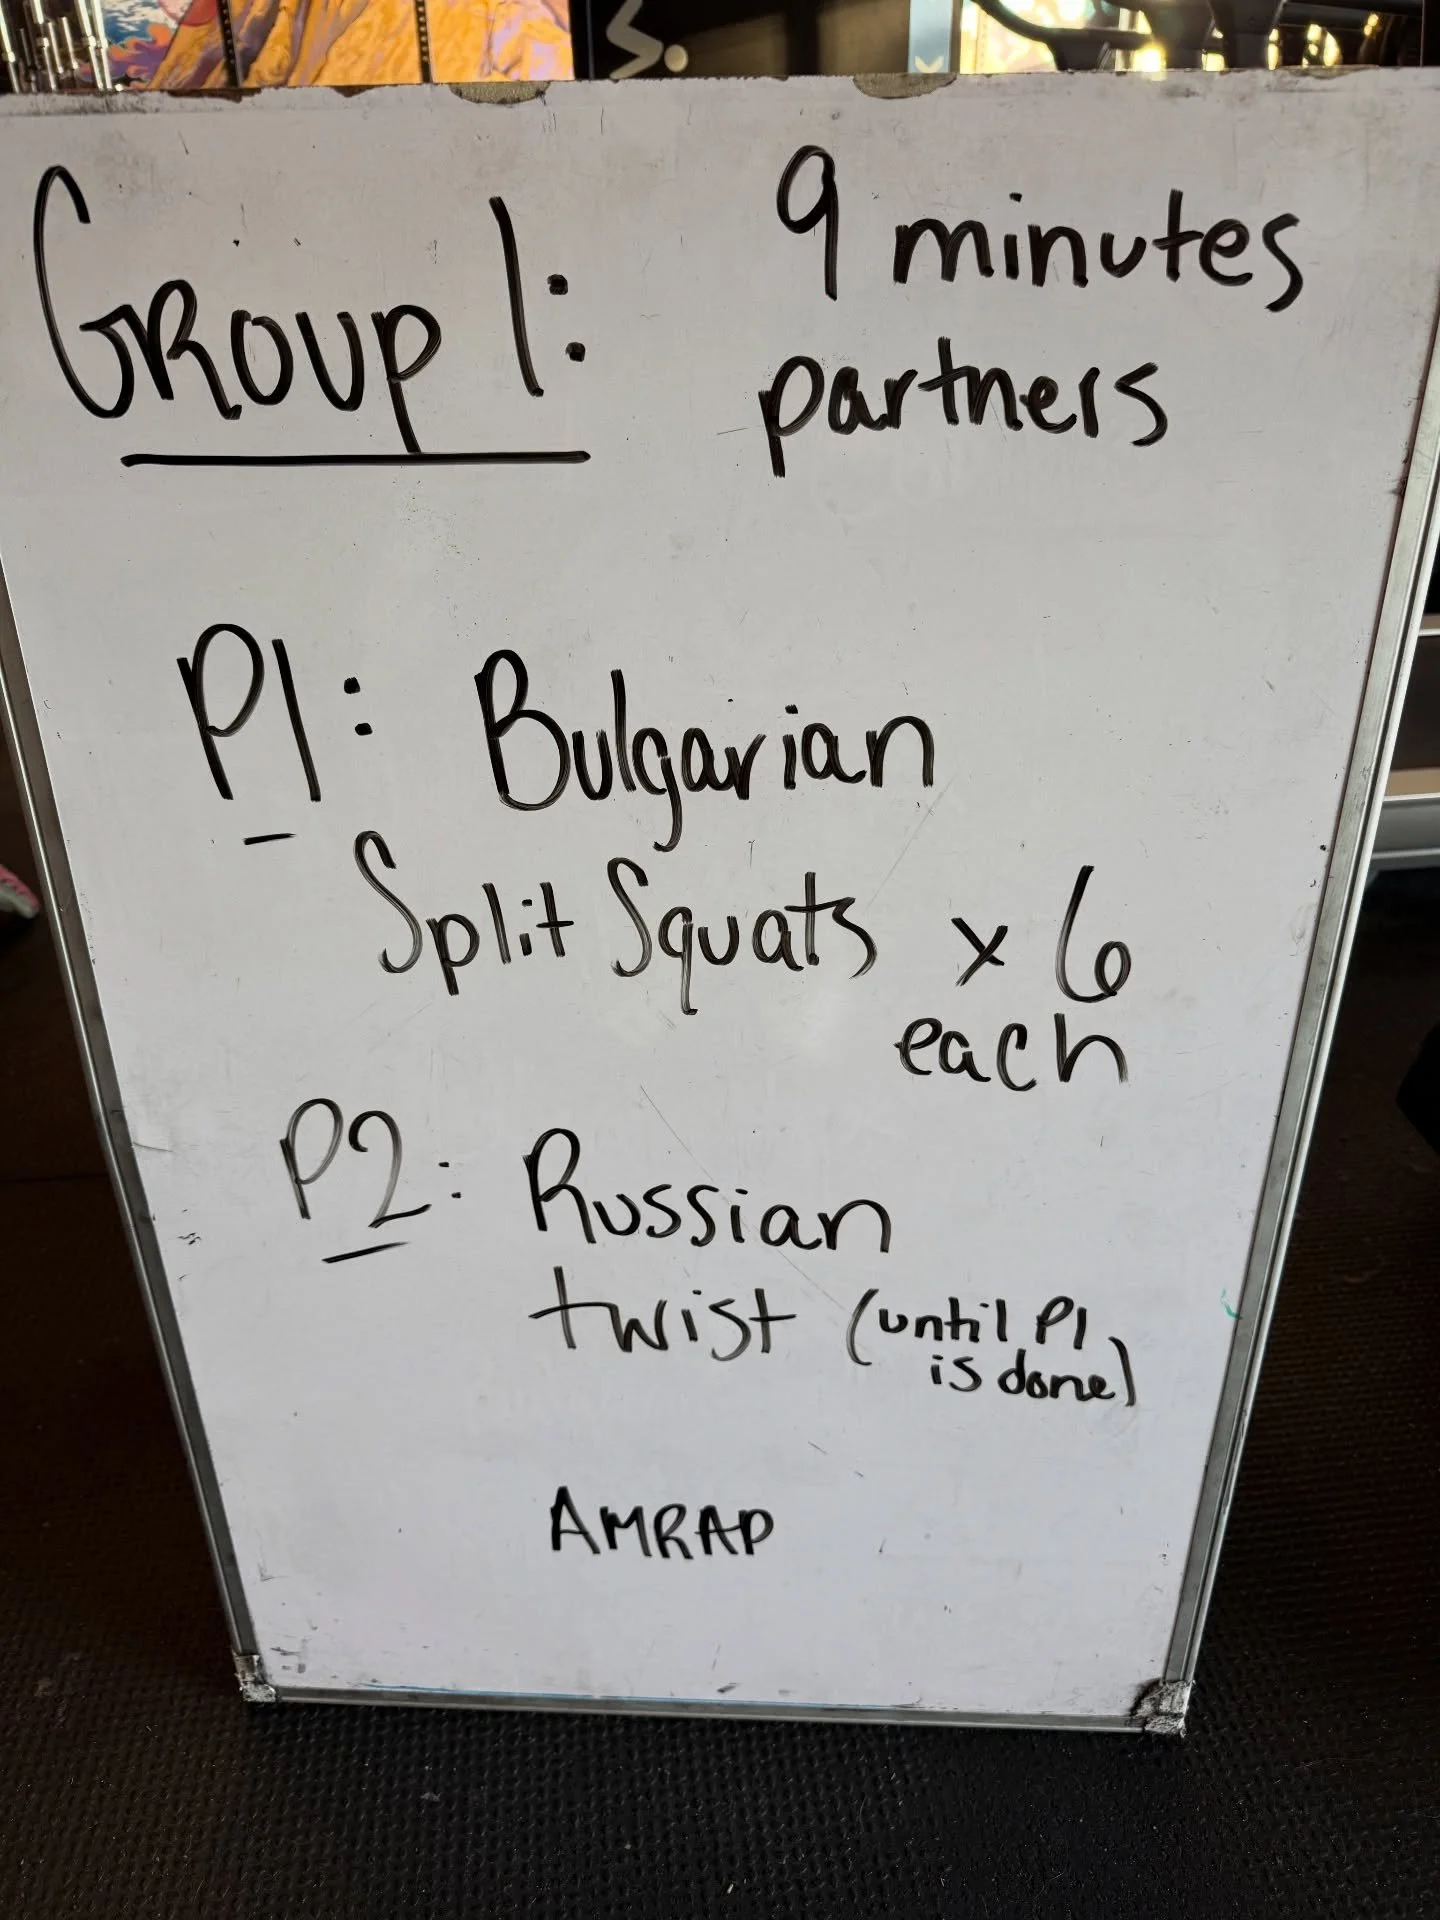 Group 1: 9 minutes
partners
P1: Bulgarian
Split Squats x 6
each
P2: Russian
twist (until P1
is done)
AMRAP